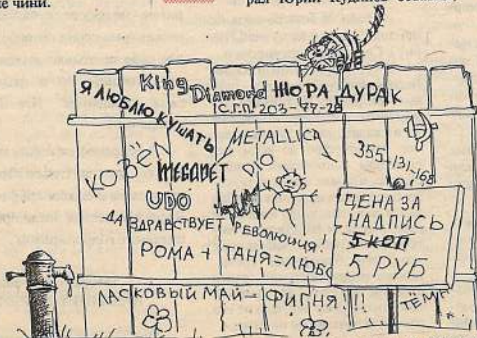 е чини.
рал Юрий
Я ЛЮБЛЮ КУШАТЬ
King Diamond
ЖОРА ДУРАК
С.Г.П. 203-77-28
METALLICA
КОЗЁЛ
MEGADET
DIO
355-131-168
UDO
ДА ЗДРАВСТВУЕТ РЕВОЛЮЦИЯ!
РОМА + ТАНЯ = ЛЮБО
ЦЕНА ЗА
НАДПИСЬ
5 КОП
5 РУБ
ЛАСКОВЫЙ МАЙ - ФИГНЯ!!!